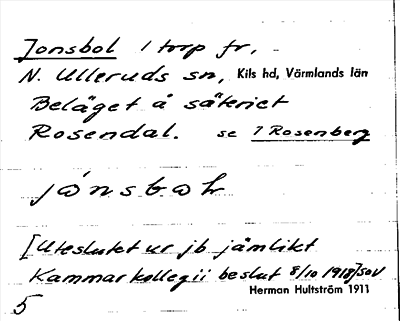 Jonsbol 1 torp fr.
N. Ulleruds sn, Kils hd, Värmlands län
Beläget å säteriet
Rosendal. se 7 Rosenberg
jȯnsboḷ
[Uteslutet ur jb jämlikt
Kammarkollegii beslut 8/10 1918] SOV
Herman Hultström 1911
5